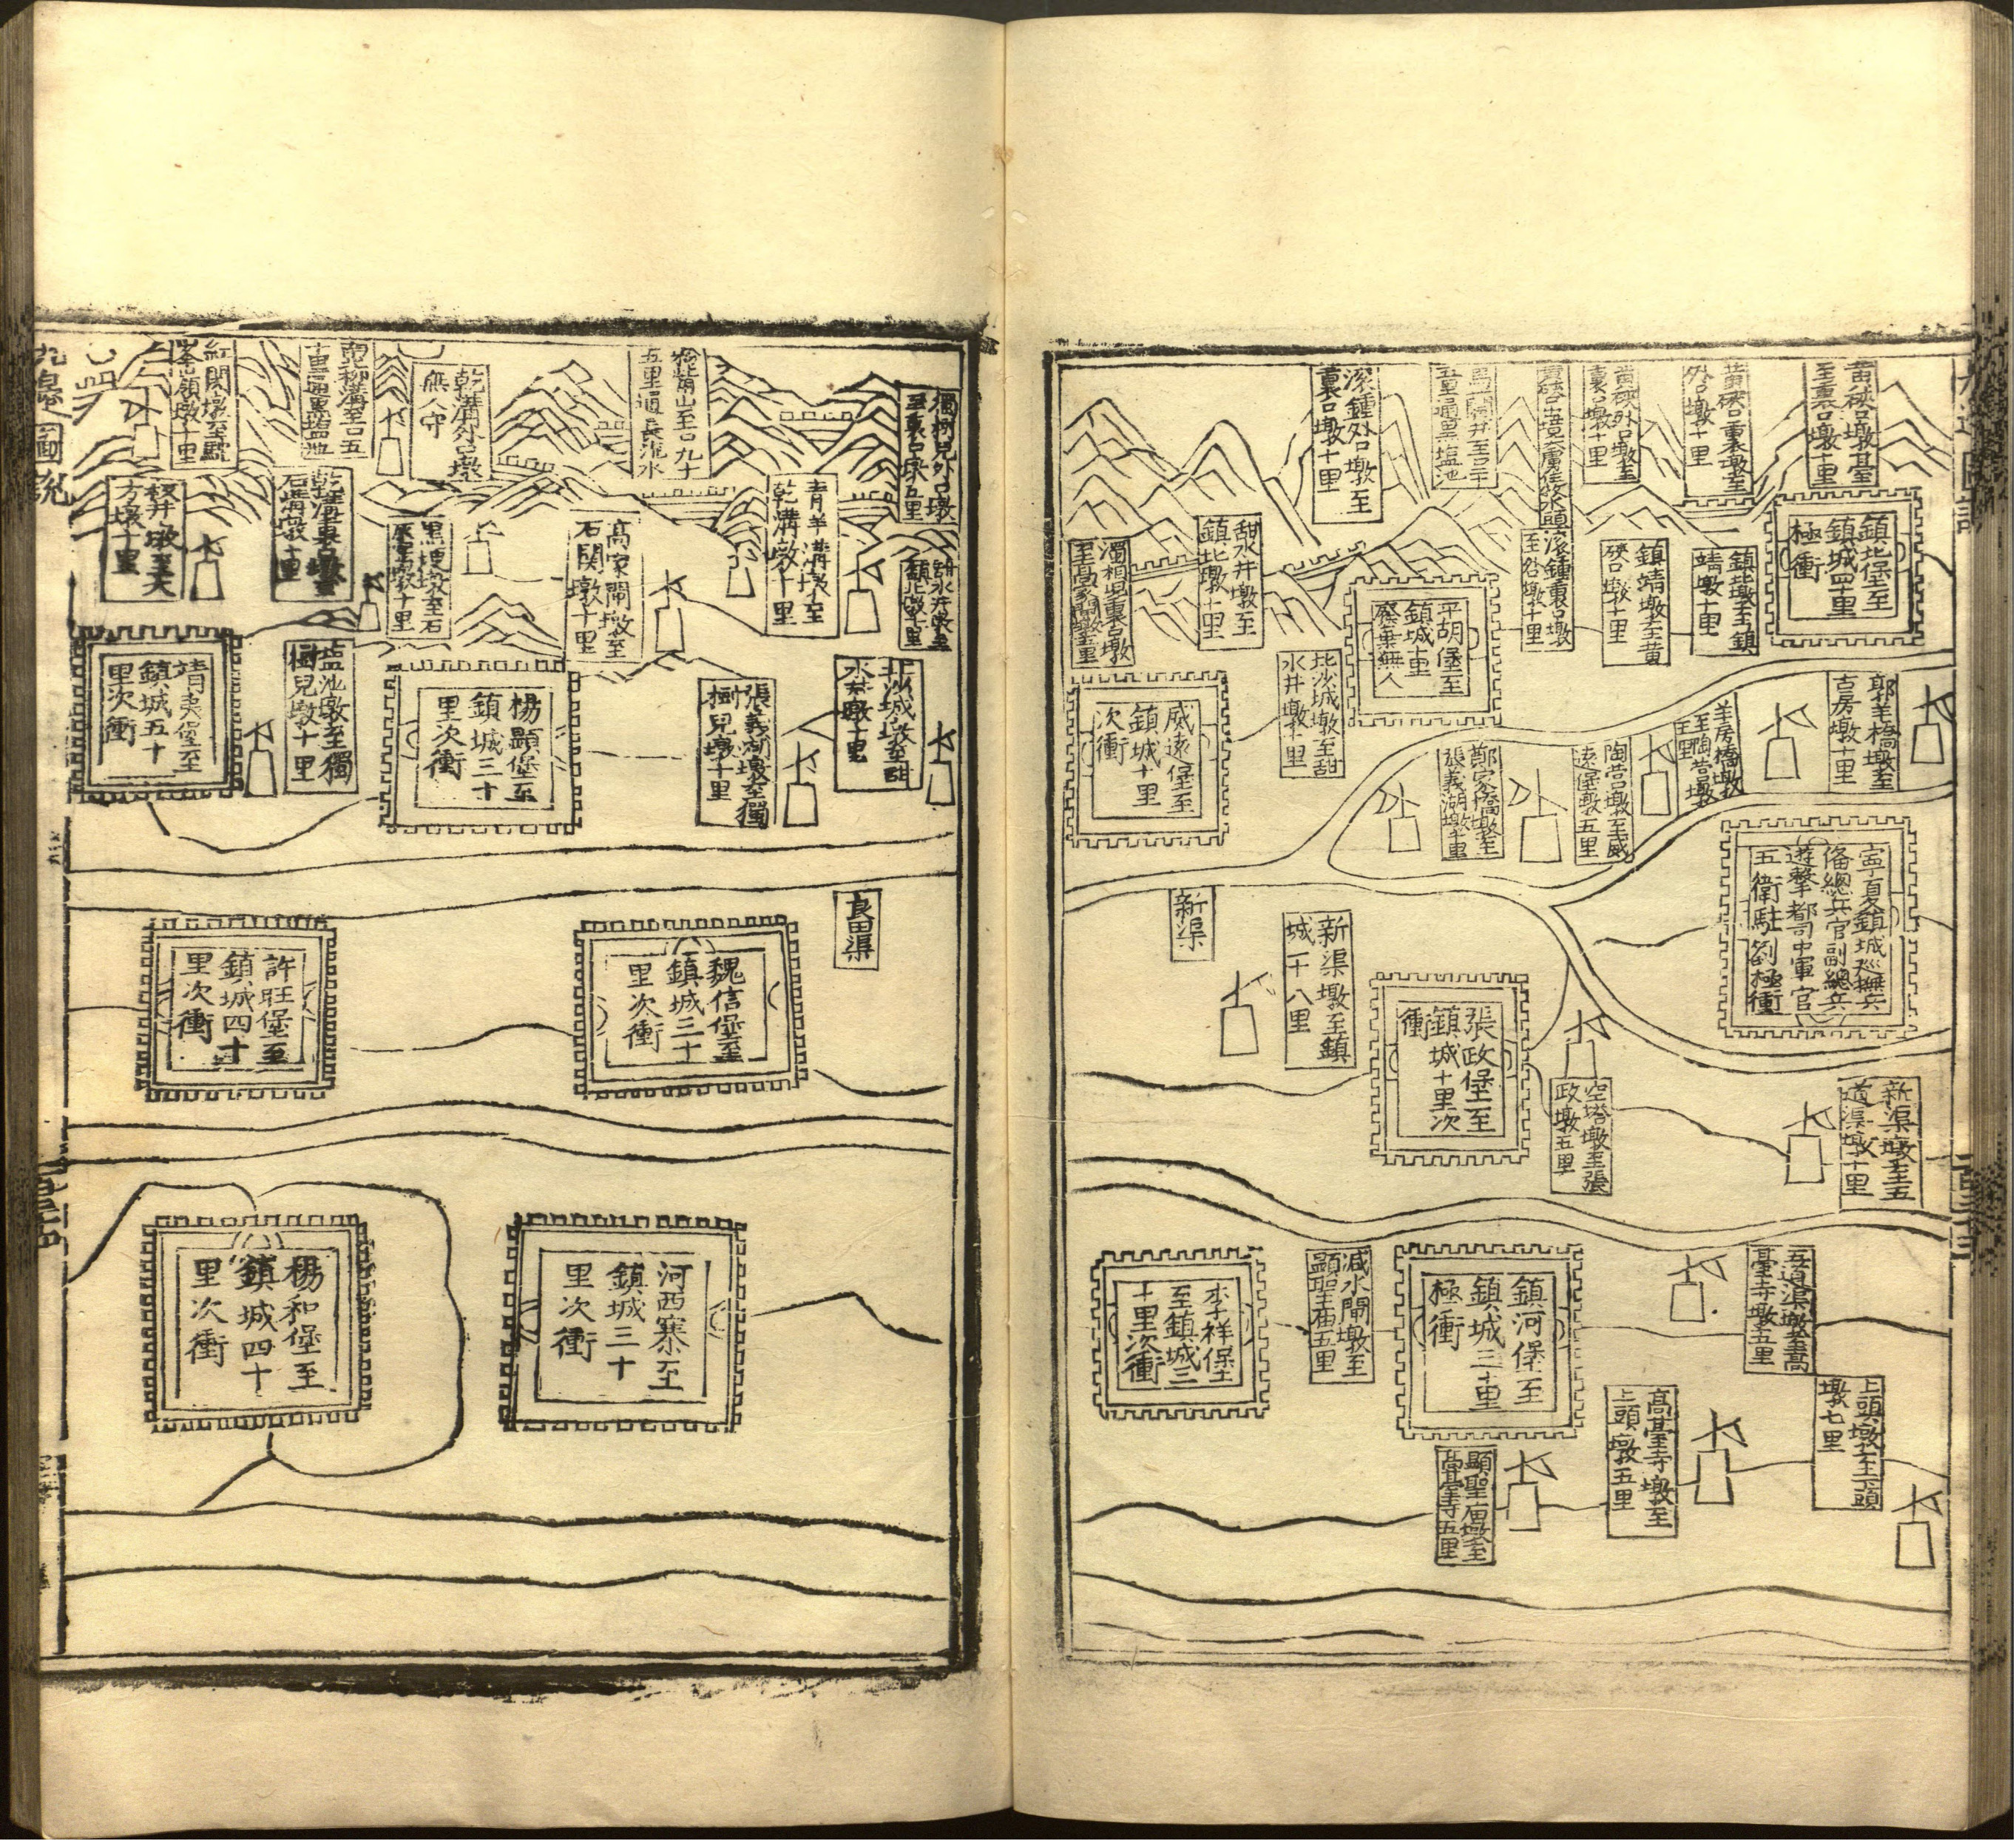 黃硤口墩臺
至裏口墩十里
黃硤口裏墩至
外口墩十里
黃硤外口墩至
裏口墩十里
五里通黑塩池
滚鍾外口墩至
裏口墩十里
鎮北堡至
鎮城四十里
極衝
鎮北墩至鎮
靖墩十里
鎮靖墩至黃
硤口墩十里
滚鍾裏口墩
平胡堡至
鎮城十里
廢棄無人
甜水井墩至
鎮北墩十里
威遠堡至
鎮城十里
次衝
北沙城墩至甜
水井墩十里
郭羊橋墩至
吉房墩十里
羊房橋墩
至陶营墩
陶营墩至威
遠堡墩五里
鄭家橋墩至
張義湖墩十里
寧夏鎮城巡撫兵
俻總兵官副總兵
遊擊都司中軍官
五衛駐劄極衝
新渠
新渠墩至鎮
城一十八里
張政堡至
鎮城十里次
衝
空塔墩至張
政墩五里
新渠墩至五
道渠墩十里
五道渠墩至高
臺寺墩五里
鎮河堡至
鎮城三十里
極衝
減水閘墩至
顯聖庙五里
李祥堡
至鎮城三
十里次衝
上頭墩至下頭
墩七里
高臺寺墩至
上頭墩五里
顯聖庙墩至
高臺寺五里
獨樹兒外口墩
至裏口墩五里
鎮北墩十里
五里通長流水
乾溝外口墩
無人守
十里通黑塩池
紅関墩至
嶺墩十里
青羊溝墩至
乾溝墩十里
高家閘墩至
石関墩十里
黑埂墩至石
乾溝裏口墩至
石溝墩十里
井墩至大
方墩十里
北沙城墩至甜
水井墩十里
張義湖墩至獨
樹兒墩十里
楊顯堡至
鎮城三十
里次衝
塩池墩至獨
樹兒墩十里
靖夷堡至
鎮城五十
里次衝
良田渠
魏信堡至
鎮城三十
里次衝
許旺堡至
鎮城四十
里次衝
河西寨至
鎮城三十
里次衝
楊和堡至
鎮城四十
里次衝
九邊圖說